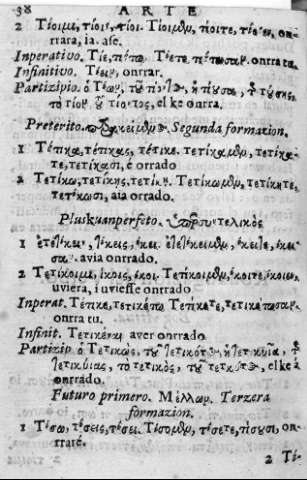 38 ARTE
2 Τίοιμι, τίοις, τίοι. Τίοιμεν, τίοιτε, τίοιεν, on-
rrara, ia. ase.
Inperativo. Τίε, Τίετε onrra tu.
Infinitivo. Τίειν, onrrar.
Partizipio. ὁ Τίων, τοῦ τίοντος, ἡ τίουσα, τῆς τιούσης,
τὸ τίον, τοῦ τίοντος, el ke onrra.
Preterito. παρακείμενος. Segunda formazion.
1 Τέτικα, τέτικας, τέτικε. Τετίκαμεν, τετίκα-
τε, τετίκασι, é onrrado.
2 Τετίκω, τετίκης, τετίκῃ. Τετίκωμεν, τετίκητε,
τετίκωσι, aia onrrado.
Pluskuanperfeto. ὑπερσυντελικὸς
1 ἐτετίκειν, τίκεις, κει. ἐτετίκειμεν, κειτε, κει-
σαν. avia onrrado.
2 Τετίκοιμι, ίκοις, ίκοι. Τετίκοιμεν, ίκοιτε, ίκοιεν,
uviera, i uviesse onrrado
Inperat. Τέτικε, τετικέτω Τετίκετε, τετικέτωσαν.
onrra tu.
Infinit. Τετικέναι aver onrrado
Partizip. ὁ Τετικὼς, τοῦ τετικότος, ἡ τετικυῖα, τῆς
τετικυίας, τὸ τετικὸς, τοῦ τετικότος, el ke á
onrrado.
Futuro primero. Μέλλων. Terzera
formazion.
1 Τίσω, τίσεις, τίσει. Τίσομεν, τίσετε, τίσουσι, on-
rraré.
2 Τί-